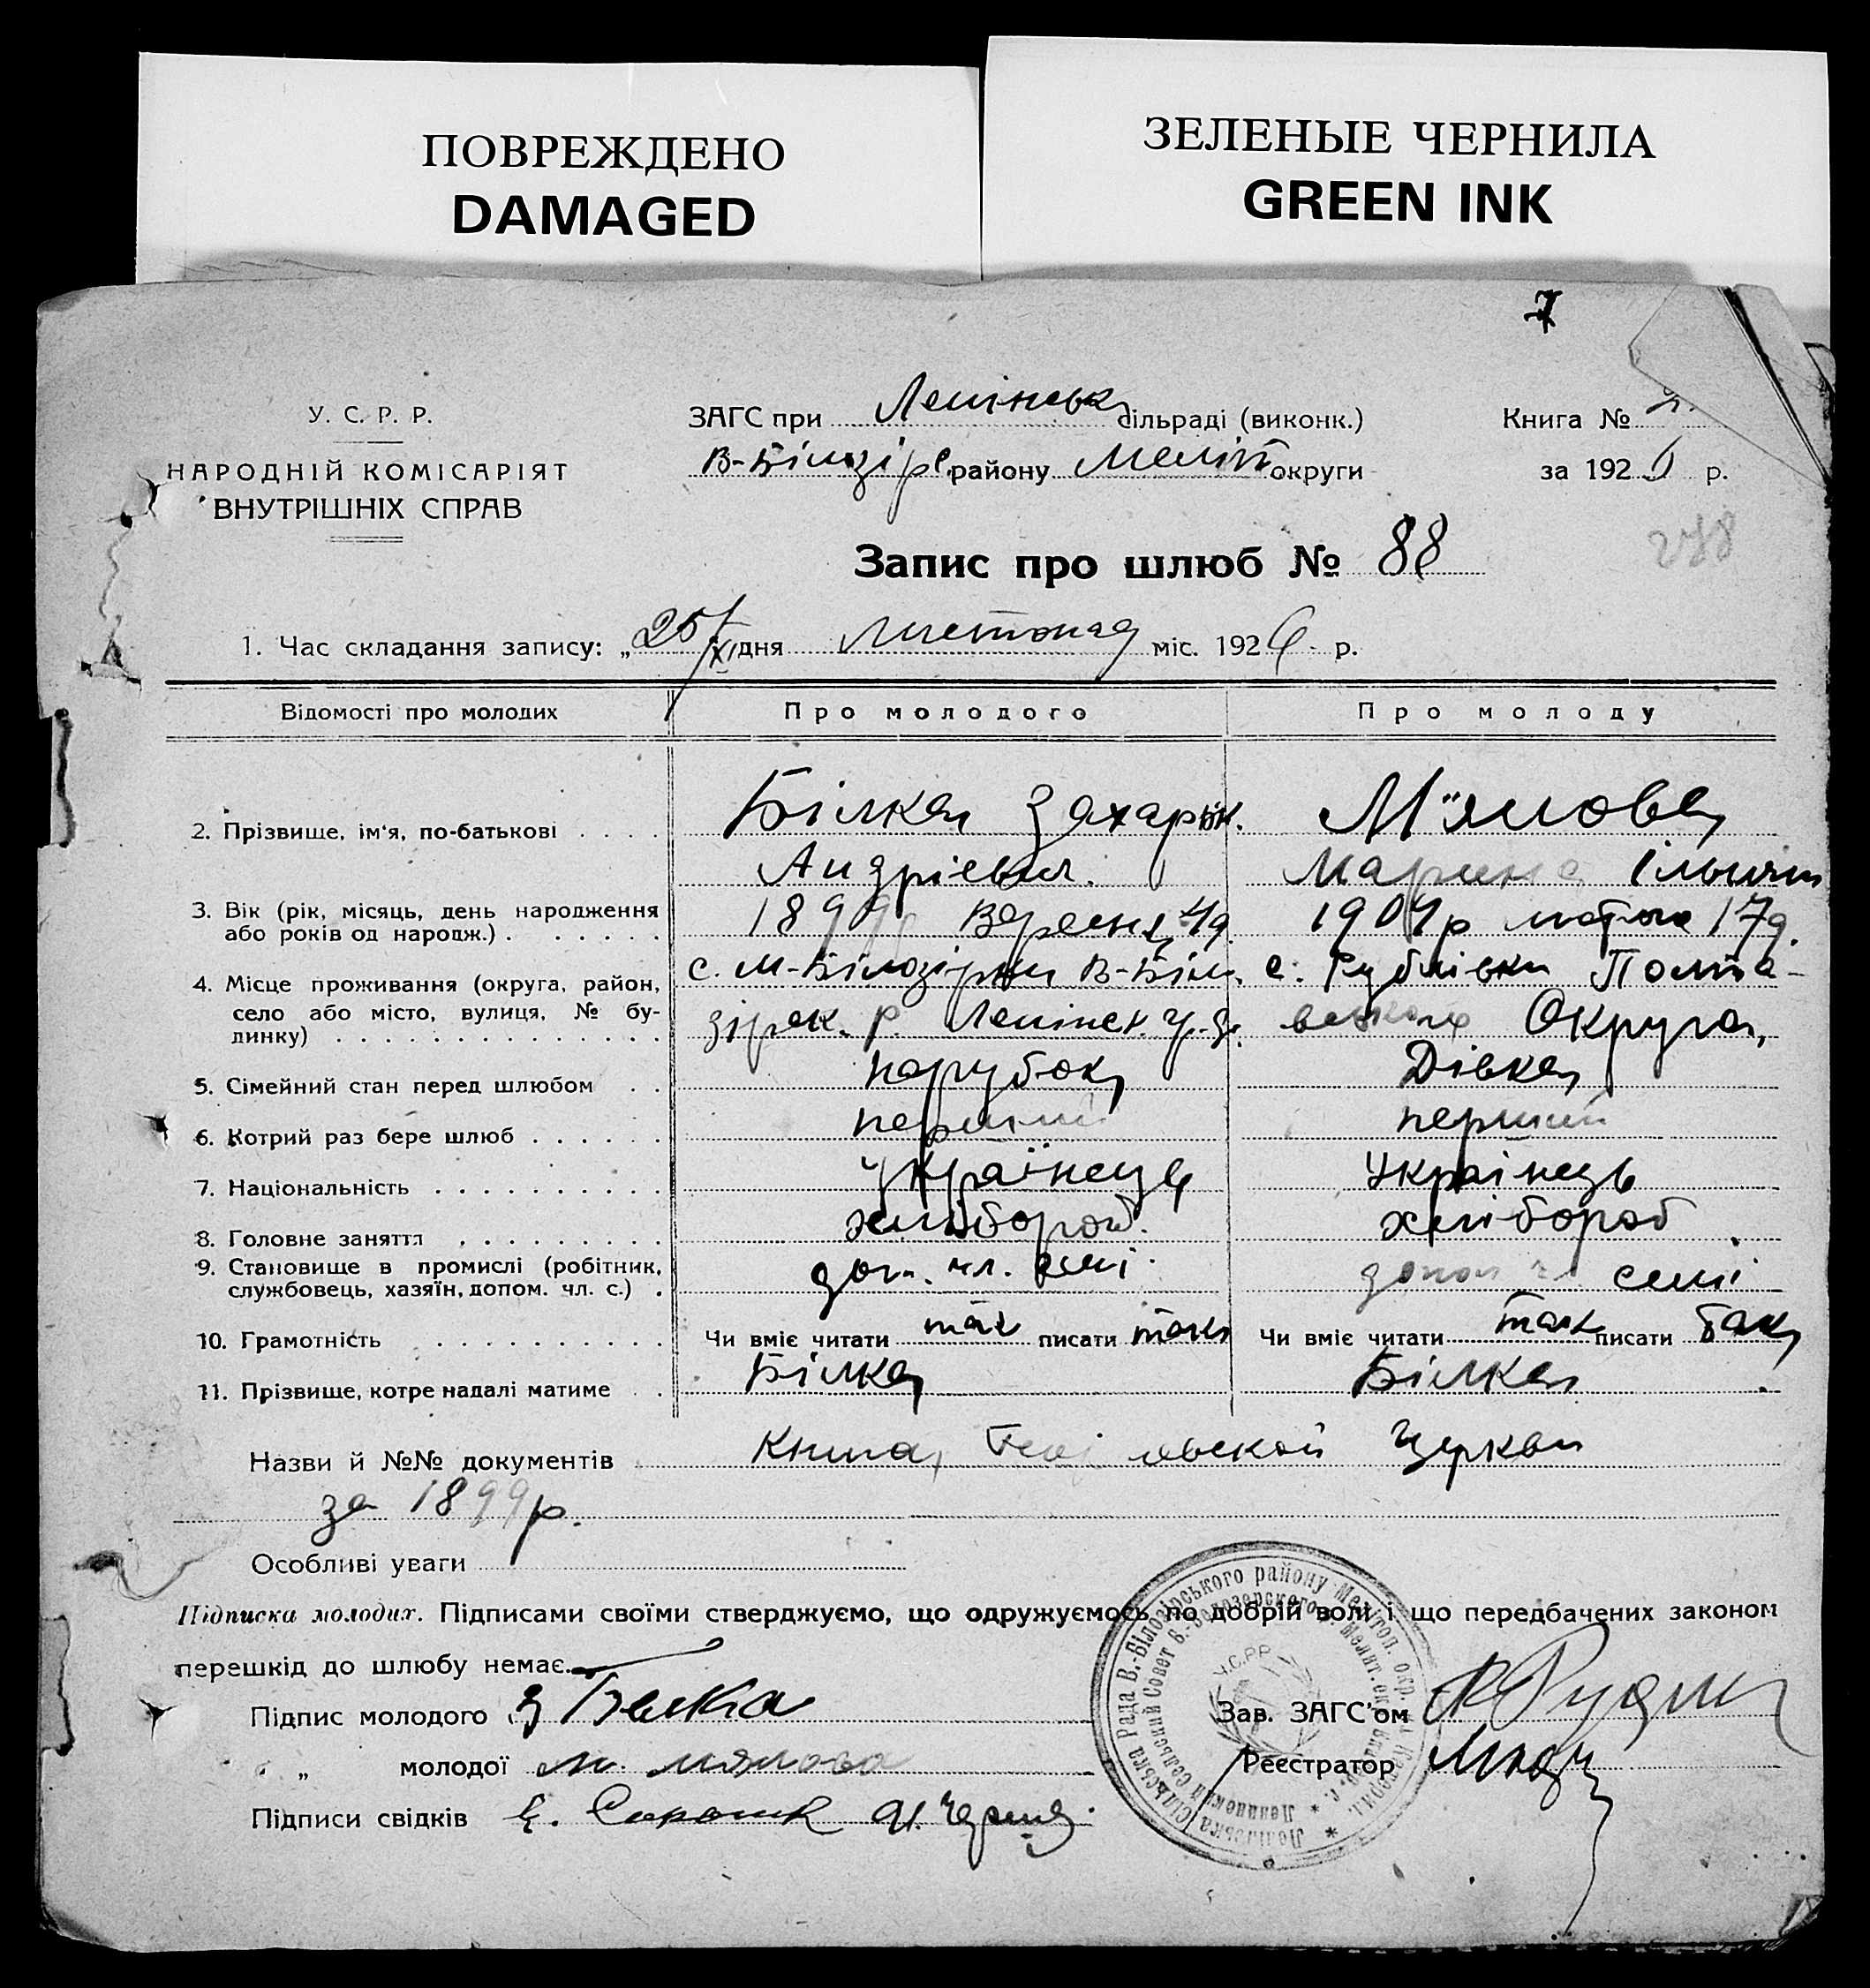 ПОВРЕЖДЕНО
DAMAGED
ЗЕЛЕНЫЕ ЧЕРНИЛА
GREEN INK
7
У. С. Р. Р.
НАРОДНІЙ КОМІСАРІЯТ
ВНУТРІШНІХ СПРАВ
ЗАГС при Ленінськ сільраді (виконк.)
В-Білозір. району Меліт округи
Книга №
за 1926 р.
278
Запис про шлюб № 88
1. Час складання запису: „25/XI дня листопад міс. 1926 р.
Відомості про молодих
Про молодого
Про молоду
2. Прізвище, ім'я, по-батькові . . . .
Білка Захарій
Андрієвич.
М'ялова
Марина Ільїчн
3. Вік (рік, місяць, день народження
або років од народж.) . . . . . .
1899р Вересня 4д.
1904р лютого 17д.
4. Місце проживання (округа, район,
село або місто, вулиця, № бу-
динку) . . . . . . . . . . . . . .
с. М-Білозірки В-Біл.
зірск. р. Ленінск. у-д.
с. Рублівки Полта-
вского Округа,
5. Сімейний стан перед шлюбом . .
парубок
Дівка
6. Котрий раз бере шлюб . . . . . .
перший
перший
7. Національність . . . . . . . . . .
Українець
Українець
8. Головне заняття . . . . . . . . .
хлібороб.
хлібороб
9. Становище в промислі (робітник,
службовець, хазяїн, допом. чл. с.) .
доп. чл. семі
допом чл семі
10. Грамотність . . . . . . . . . .
Чи вміє читати так писати так
Чи вміє читати так писати так
11. Прізвище, котре надалі матиме . .
Білка
Білка
Назви й №№ документів Книга, овской Церкви
за 1899р.
Особливі уваги
Підписка молодих. Підписами своїми стверджуємо, що одружуємось по добрій волі і що передбачених законом
перешкід до шлюбу немає.
Підпис молодого З Белка
„ молодої М. Мялова
Підписи свідків
Зав. ЗАГС'ом
Реєстратор
Сільська Рада В.-Білозірського району Мелітоп. окр.
Ленинский Сельский Совет В.-Белозерского р. Мелит. окр.
У.С.Р.Р.